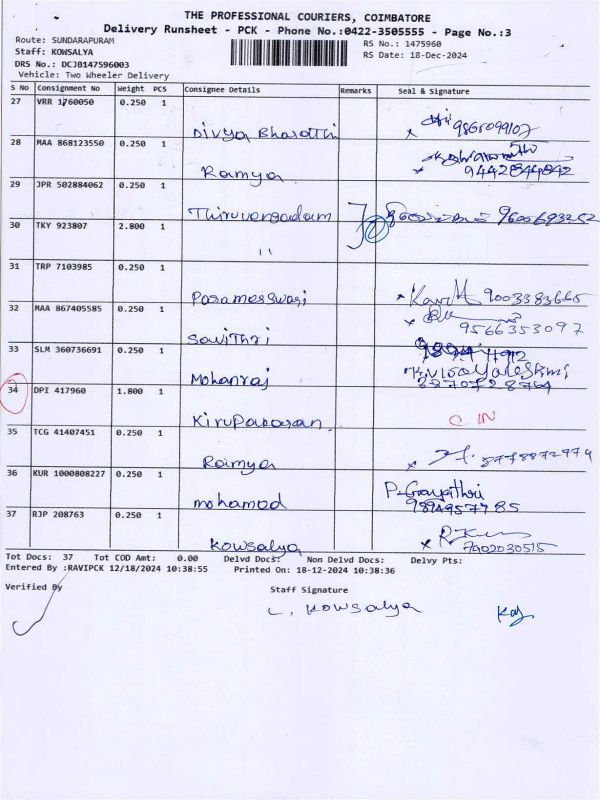 THE PROFESSIONAL COURIERS, COIMBATORE
Delivery Runsheet - PCK - Phone No.:0422-3505555 - Page No.:3
Route: SUNDARAPURAM
RS No.: 1475960
Staff: KOWSALYA
RS Date: 18-Dec-2024
DRS No.: DCJB147596003
Vehicle: Two Wheeler Delivery
S No Consignment No Weight PCS Consignee Details Remarks Seal & Signature
27 VRR 1760050 0.250 1
Divya Bharathi 9865099107
28 MAA 868123550 0.250 1
Ramya 9442844842
29 JPR 502884062 0.250 1
Thiruvengadam
30 TKY 923807 2.800 1
"
31 TRP 7103985 0.250 1
Parameswari 9003383665
32 MAA 867405585 0.250 1
Savithri 9566353097
33 SLM 360736691 0.250 1
Mohanraj
34 DPI 417960 1.800 1
Kirupakaran C IN
35 TCG 41407451 0.250 1
Ramya
36 KUR 1000808227 0.250 1
P. Gayathri
mohamad 9894957785
37 RJP 208763 0.250 1
Kowsalya 7902030515
Tot Docs: 37 Tot COD Amt: 0.00 Delvd Docs: Non Delvd Docs: Delvy Pts:
Entered By :RAVIPCK 12/18/2024 10:38:55 Printed On: 18-12-2024 10:38:36
Verified By Staff Signature
L. Kowsalya